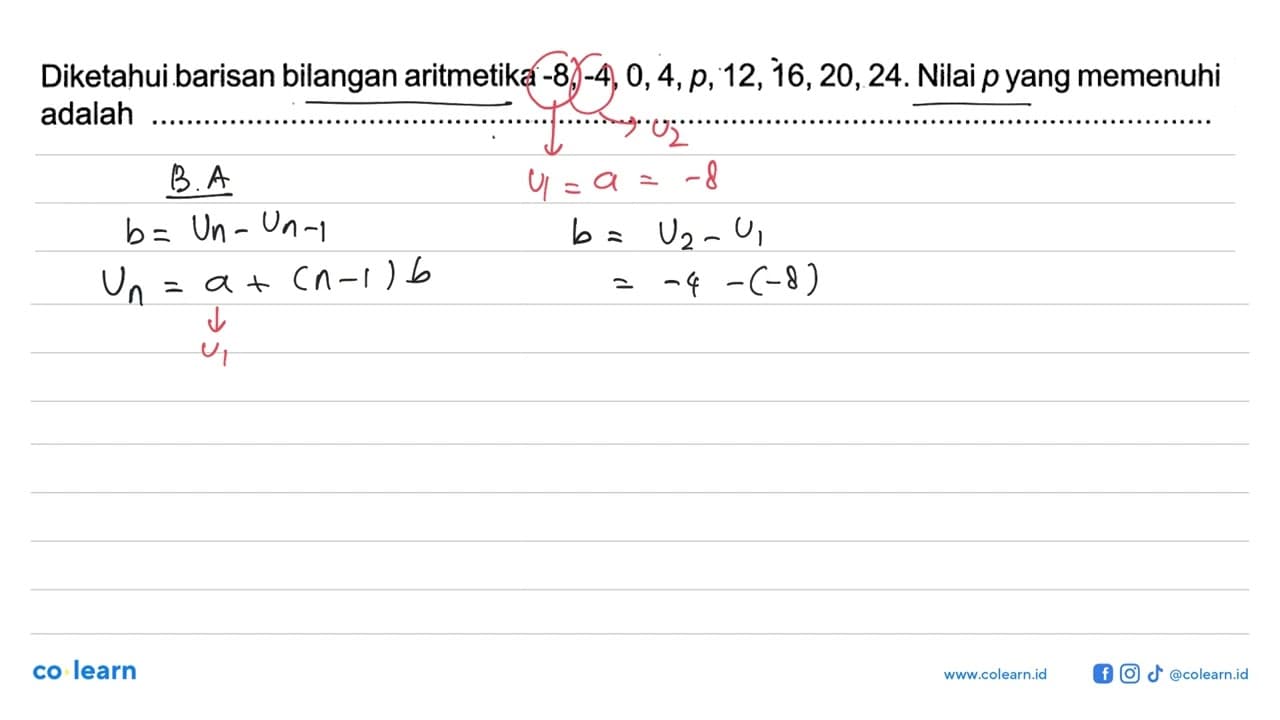 Diketahui barisan bilangan aritmetika -8, -4, 0, 4, p, 12, 16, 20, 24. Nilai p yang memenuhi
adalah ....................................................................................................
→ U2
B.A
U1 = a = -8
b = Un - Un-1
b = U2 - U1
Un = a + (n-1) b
= -4 - (-8)
↓
U1
co learn
www.colearn.id
@colearn.id